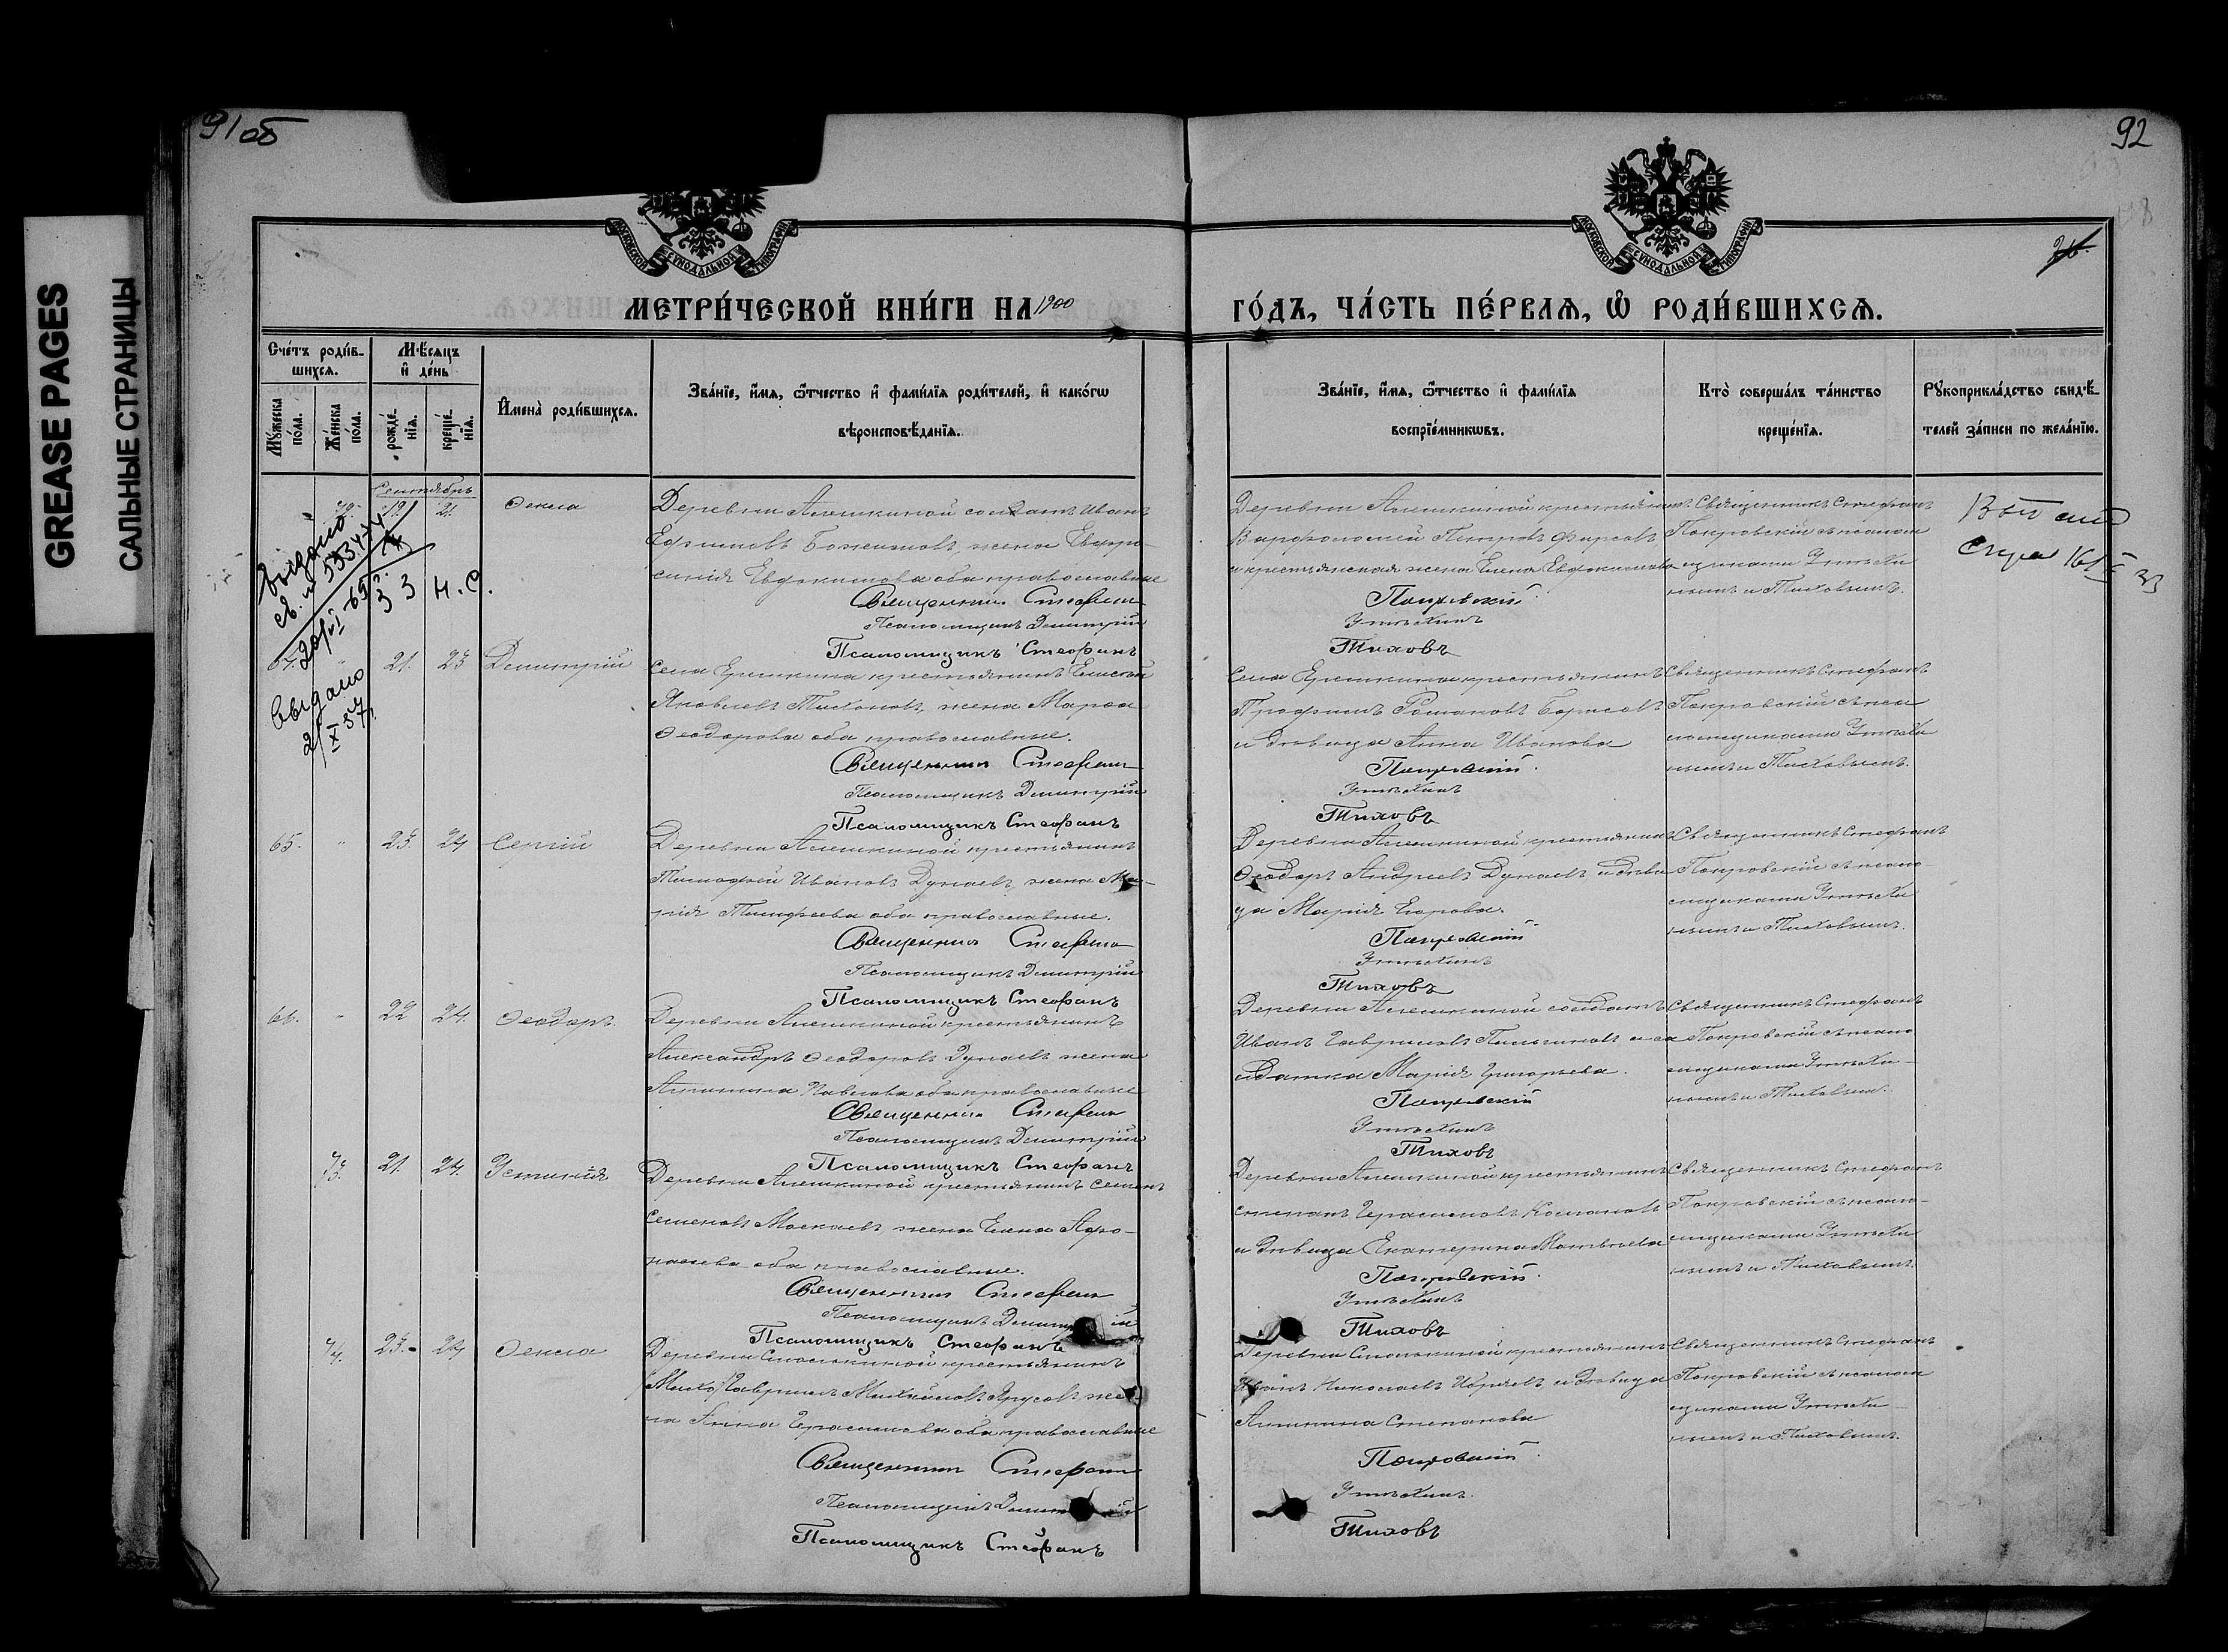 GREASE PAGES
САЛЬНЫЕ СТРАНИЦЫ
91об
92
МОСКОВСКОЙ СѴНОДАЛЬНОЙ ТИПОГРАФІИ
МОСКОВСКОЙ СѴНОДАЛЬНОЙ ТИПОГРАФІИ
МЕТРИ́ЧЕСКОЙ КНИ́ГИ НА 1900
ГО́ДЪ, ЧА́СТЬ ПЕ́РВАѦ, Ѽ РОДИ́ВШИХСѦ.
Сче́тъ роди́в-
шихсѧ.
Мѣ́сѧцъ
и҆ де́нь
Мꙋ́жеска по́ла.
Же́нска по́ла.
рожде́нїѧ.
креще́нїѧ.
И҆мена̀ роди́вшихсѧ.
Зва́нїе, и҆́мѧ, ѻ҆́тчество и҆ фами́лїѧ роди́телей, и҆ како́гѡ
вѣроисповѣ́данїѧ.
Зва́нїе, и҆́мѧ, ѻ҆́тчество и҆ фами́лїѧ
воспрїе́мникѡвъ.
Кто̀ соверша́лъ та́инство
креще́нїѧ.
Рꙋкоприкла́дство свидѣ́-
телей за́писи по жела́нїю.
Сентябрь
72. 19. 21. Ѳекла
Деревни Алешкиной солдатъ Иванъ
Ефимовъ Боженовъ, жена Евфро-
синія Евдокимова оба православные
Священникъ Стефанъ
Псаломщикъ Димитрій
Псаломщикъ Стефанъ
Деревни Алешкиной крестьянинъ
Варфоломей Петровъ Фирсовъ
и крестьянская жена Елена Евдокимова
Покровскій
Утѣхинъ
Тиховъ
Священникъ Стефанъ
Покровскій съ псалом
щиками Утѣхи
нымъ и Тиховымъ.
Выдано
св. 33 Н.С.
64. " 21. 23 Димитрій
Села Ерешкина крестьянинъ Елисей
Яковлевъ Тихоновъ, жена Марѳа
Ѳеодорова оба православные.
Священникъ Стефанъ
Псаломщикъ Димитрій
Псаломщикъ Стефанъ
Села Ерешкина крестьянинъ
Трофимъ Романовъ Борисовъ
и дѣвица Анна Иванова
Покровскій
Утѣхинъ
Тиховъ
Священникъ Стефанъ
Покровскій съ пса
ломщиками Утѣхи
нымъ и Тиховымъ.
Выдано
2/X 57
65. " 23. 24 Сергій
Деревни Алешкиной крестьянинъ
Тимофей Ивановъ Дунаевъ, жена Ма-
рія Тимофеева оба православные.
Священникъ Стефанъ
Псаломщикъ Димитрій
Псаломщикъ Стефанъ
Деревни Алешкиной крестьянинъ
Ѳеодоръ Андреевъ Дунаевъ и дѣви
ца Марія Егорова.
Покровскій
Утѣхинъ
Тиховъ
Священникъ Стефанъ
Покровскій съ псалом
щиками Утѣхи
нымъ и Тиховымъ.
66. " 22 24. Ѳеодоръ.
Деревни Алешкиной крестьянинъ
Александръ Ѳеодоровъ Дунаевъ жена
Акилина Павлова оба православные
Священникъ Стефанъ
Псаломщикъ Димитрій
Псаломщикъ Стефанъ
Деревни Алешкиной солдатъ
Иванъ Гавриловъ и со
лдатка Марія Григорьева.
Покровскій
Утѣхинъ
Тиховъ
Священникъ Стефанъ
Покровскій съ псалом
щиками Утѣхи-
нымъ и Тиховым.
73. 21. 24. Устинія
Деревни Алешкиной крестьянинъ Семенъ
Семеновъ Москаевъ жена Елена Афо-
насьева оба православные.
Священникъ Стефанъ
Псаломщикъ Димитрій
Псаломщикъ Стефанъ
Деревни Алешкиной крестьянинъ
Степанъ Герасимовъ
и дѣвица Екатерина Матвѣева
Покровскій
Утѣхинъ
Тиховъ
Священникъ Стефанъ
Покровскій съ псалом-
щиками Утѣхи
нымъ и Тиховымъ
74. 23. 24 Ѳекла
Деревни крестьянинъ
Гавріилъ Михайловъ же
на Анна Герасимова оба православные
Священникъ Стефанъ
Псаломщикъ Димитрій
Псаломщикъ Стефанъ
Деревни крестьянинъ
Иванъ Николаевъ и дѣвица
Акилина Степанова
Покровскій
Утѣхинъ.
Тиховъ
Священникъ Стефанъ
Покровскій съ псалом
щиками Утѣхи-
нымъ и Тиховымъ.